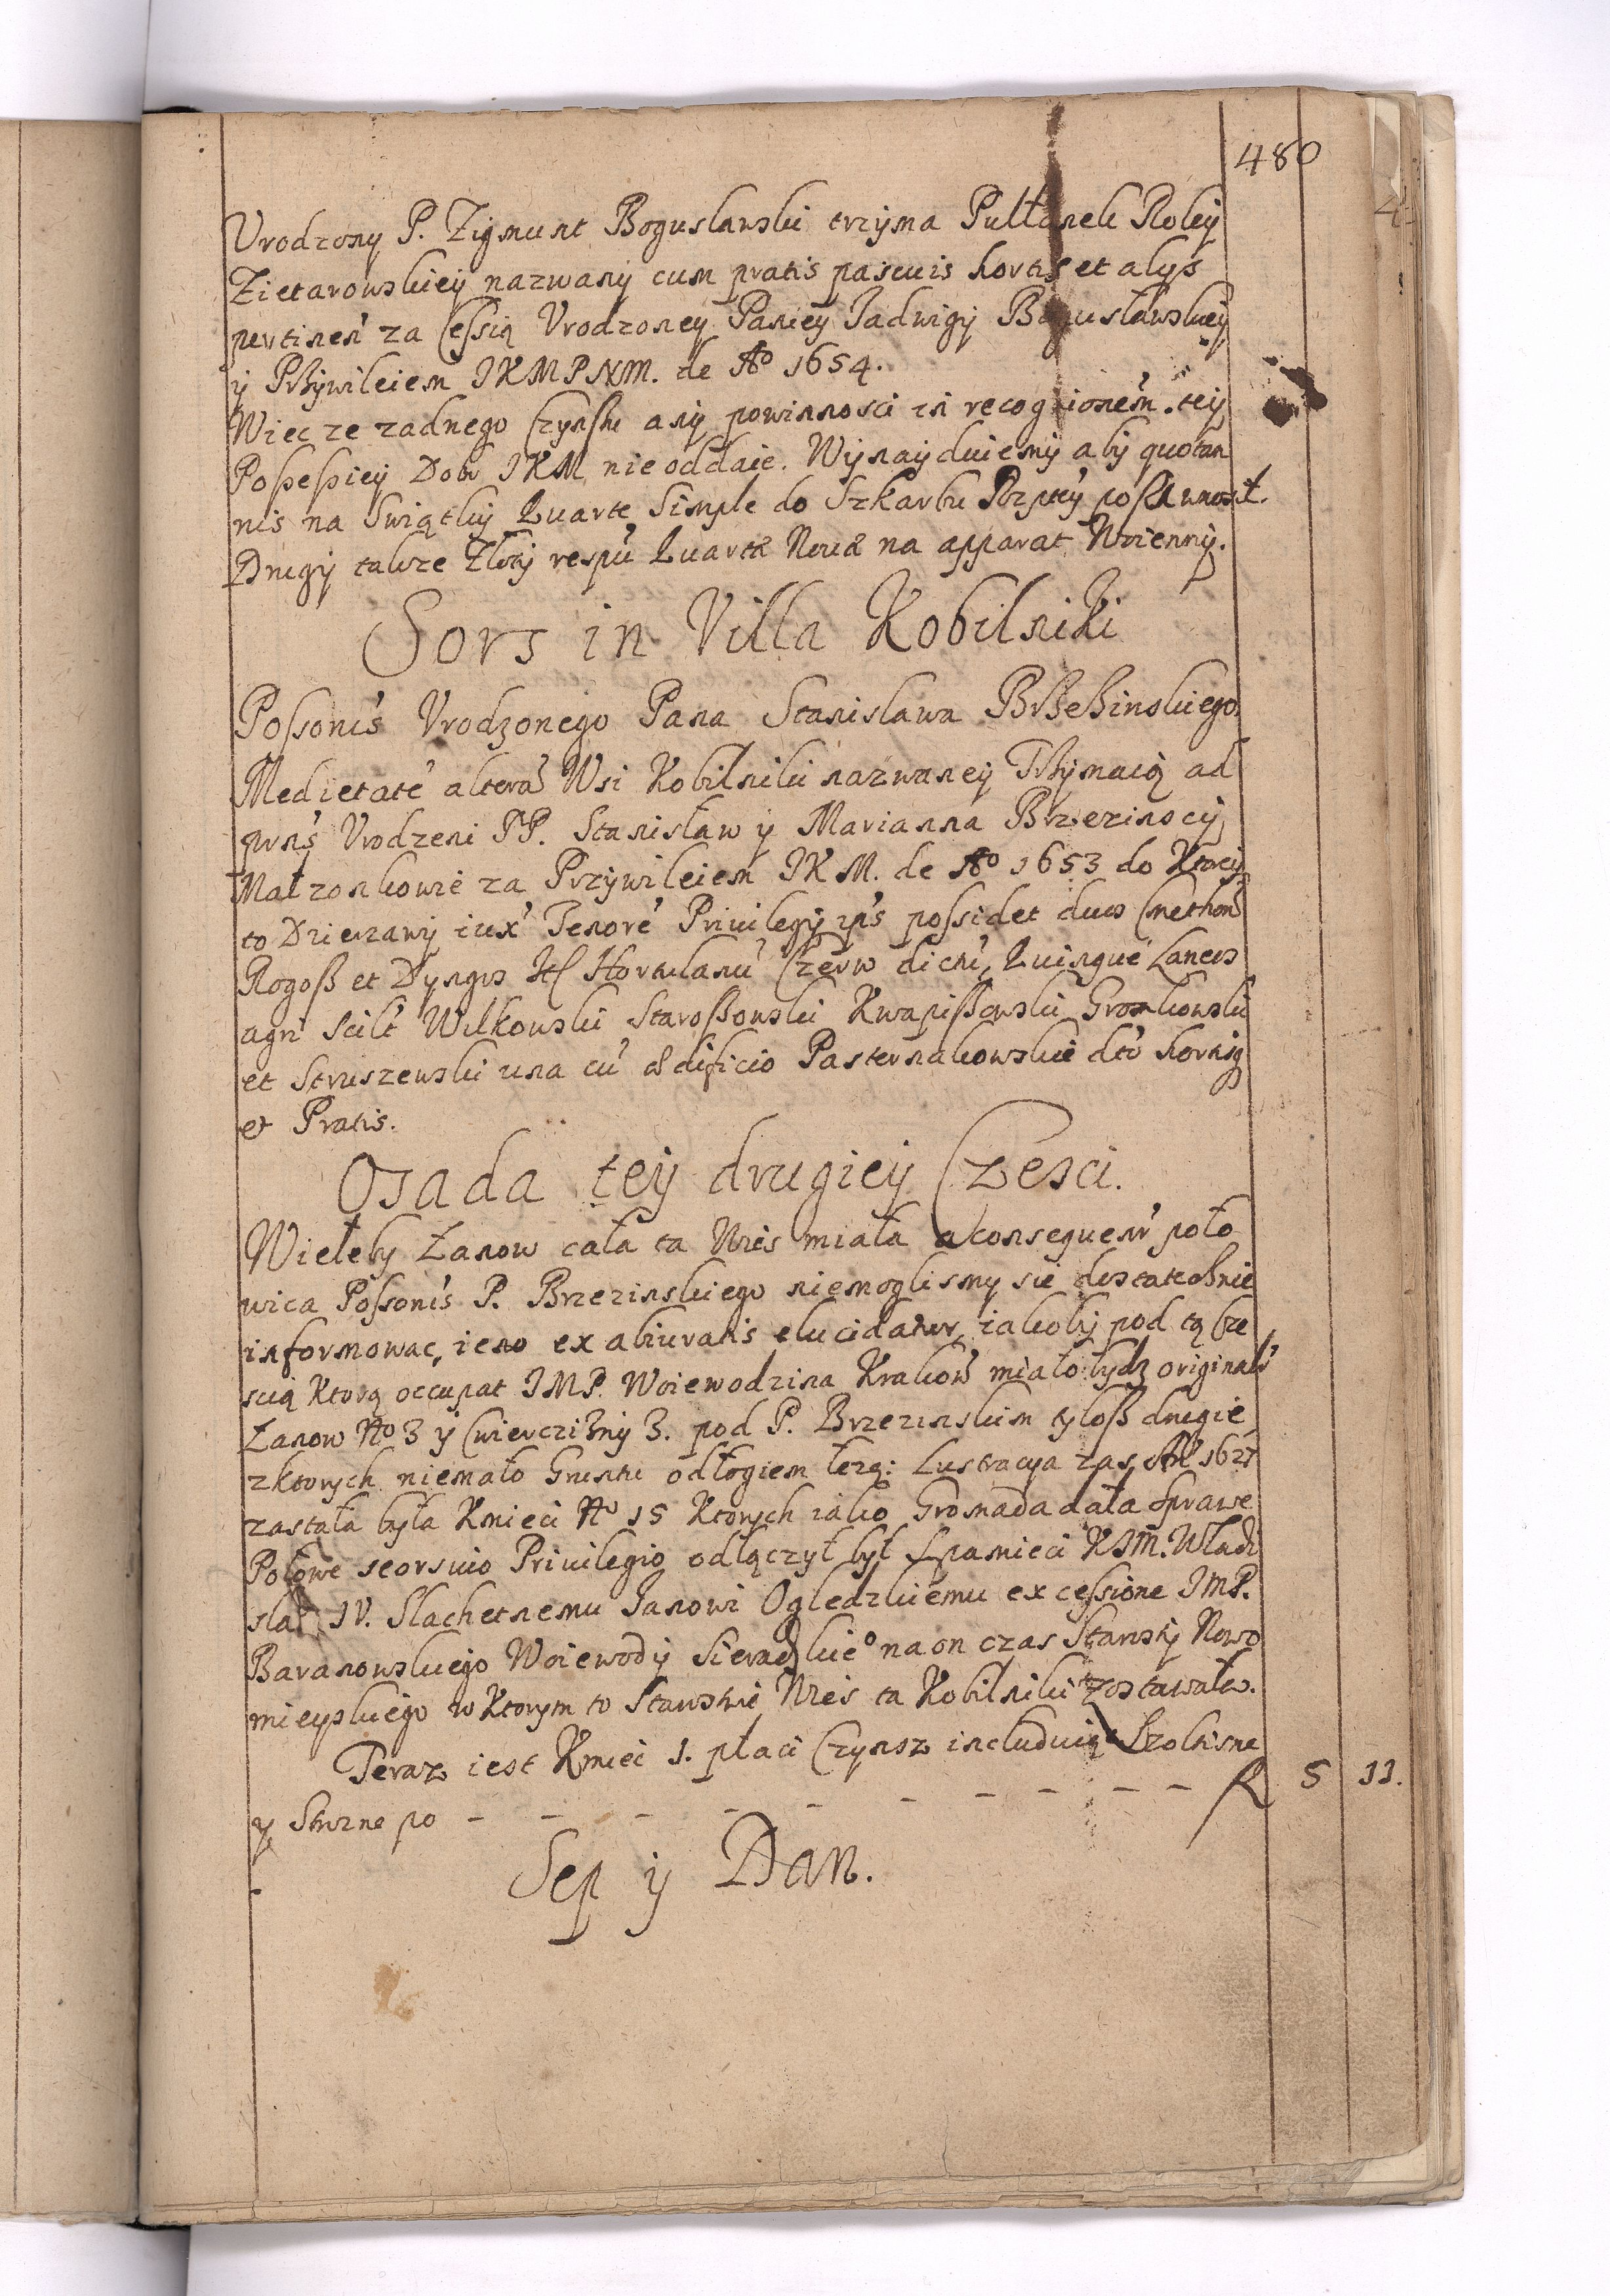 480
Urodzony P. Zigmunt Boguslawski trzyma Pułłanek Roley
Zietarowskiey nazwany cum pratis pascuis hortis et alys
pertineń za Cessią Urodzoney Paniey Jadwigy Bogusławskiey
y Przywileiem JKMPNM. de Ao 1654.
Wiec ze zadnego Czynszu any powinnosci in recognionem tey
Possessiey Dobr JKM nie oddaie. Wynayduiemy aby quotan
nis na Swiątky Kwarte Simple do Szkarbu Rzptey
Drugy takze Złoty respu Quartæ Novæ na apparat Woienny.
Sors in Villa Kobilniki
Possonis Urodzonego Pana Stanislawa Brzezinskiego.
Medietate altera Wsi Kobilniki nazwaney Trzymaią ad
prns Urodzeni PP. Stanisław y Marianna Brzezinscy
Małzonkowie za Przywileiem JKM. de Ao 1653 do Ktorey
to Dzierzawy iux Tenore Privilegy ips possidet duos Cmethon
Rogoss et Dyngos It Hortulanu Czerw dictu, Quinque Laneos
agri Scilt Wilkowski Starossowski Kwapissewski Gromkowski
et Struszewski una cu ædificio Pasternakowskie dto hortis
et Pratis.
Osada tey drugiey Czesci.
Wieleby Łanow cała ta Wies miała a consequenr poło
wica Possonis P. Brzezinskiego niemoglismy sie dostatechnie
informowac, ieno ex abiuratis elucidatur, iakoby pod tą cze
scią Ktorą occupat JMP. Woiewodzina Krakow miało bydz original
Łanow No 3 y Cwiercizny 3. pod P. Brzezinskim tyloss drugie
zktorych niemało Gruntu odłogiem lezą: Lustracya zas
zastała była Kmieci No 15 Ktorych iako Gromada dała sprawe
Połowe seorsivo Privilegio odłączył był s pamieci KJM. Wladi
sla IV. Slachetnemu Janowi Ogledzkiemu ex cessione JMP.
Baranowskiego Woiewody Sieradzkieo na on czas Starosty Nowo
mieyskiego w Ktorym to Starostwie Wies ta Kobilniki zostawała.
Teraz iest Kmieci 1. płaci Czynsz includuiąc Szoltisne
y Strozne po - - - - - - - - - - fl 5 11.
Sep y Dan.